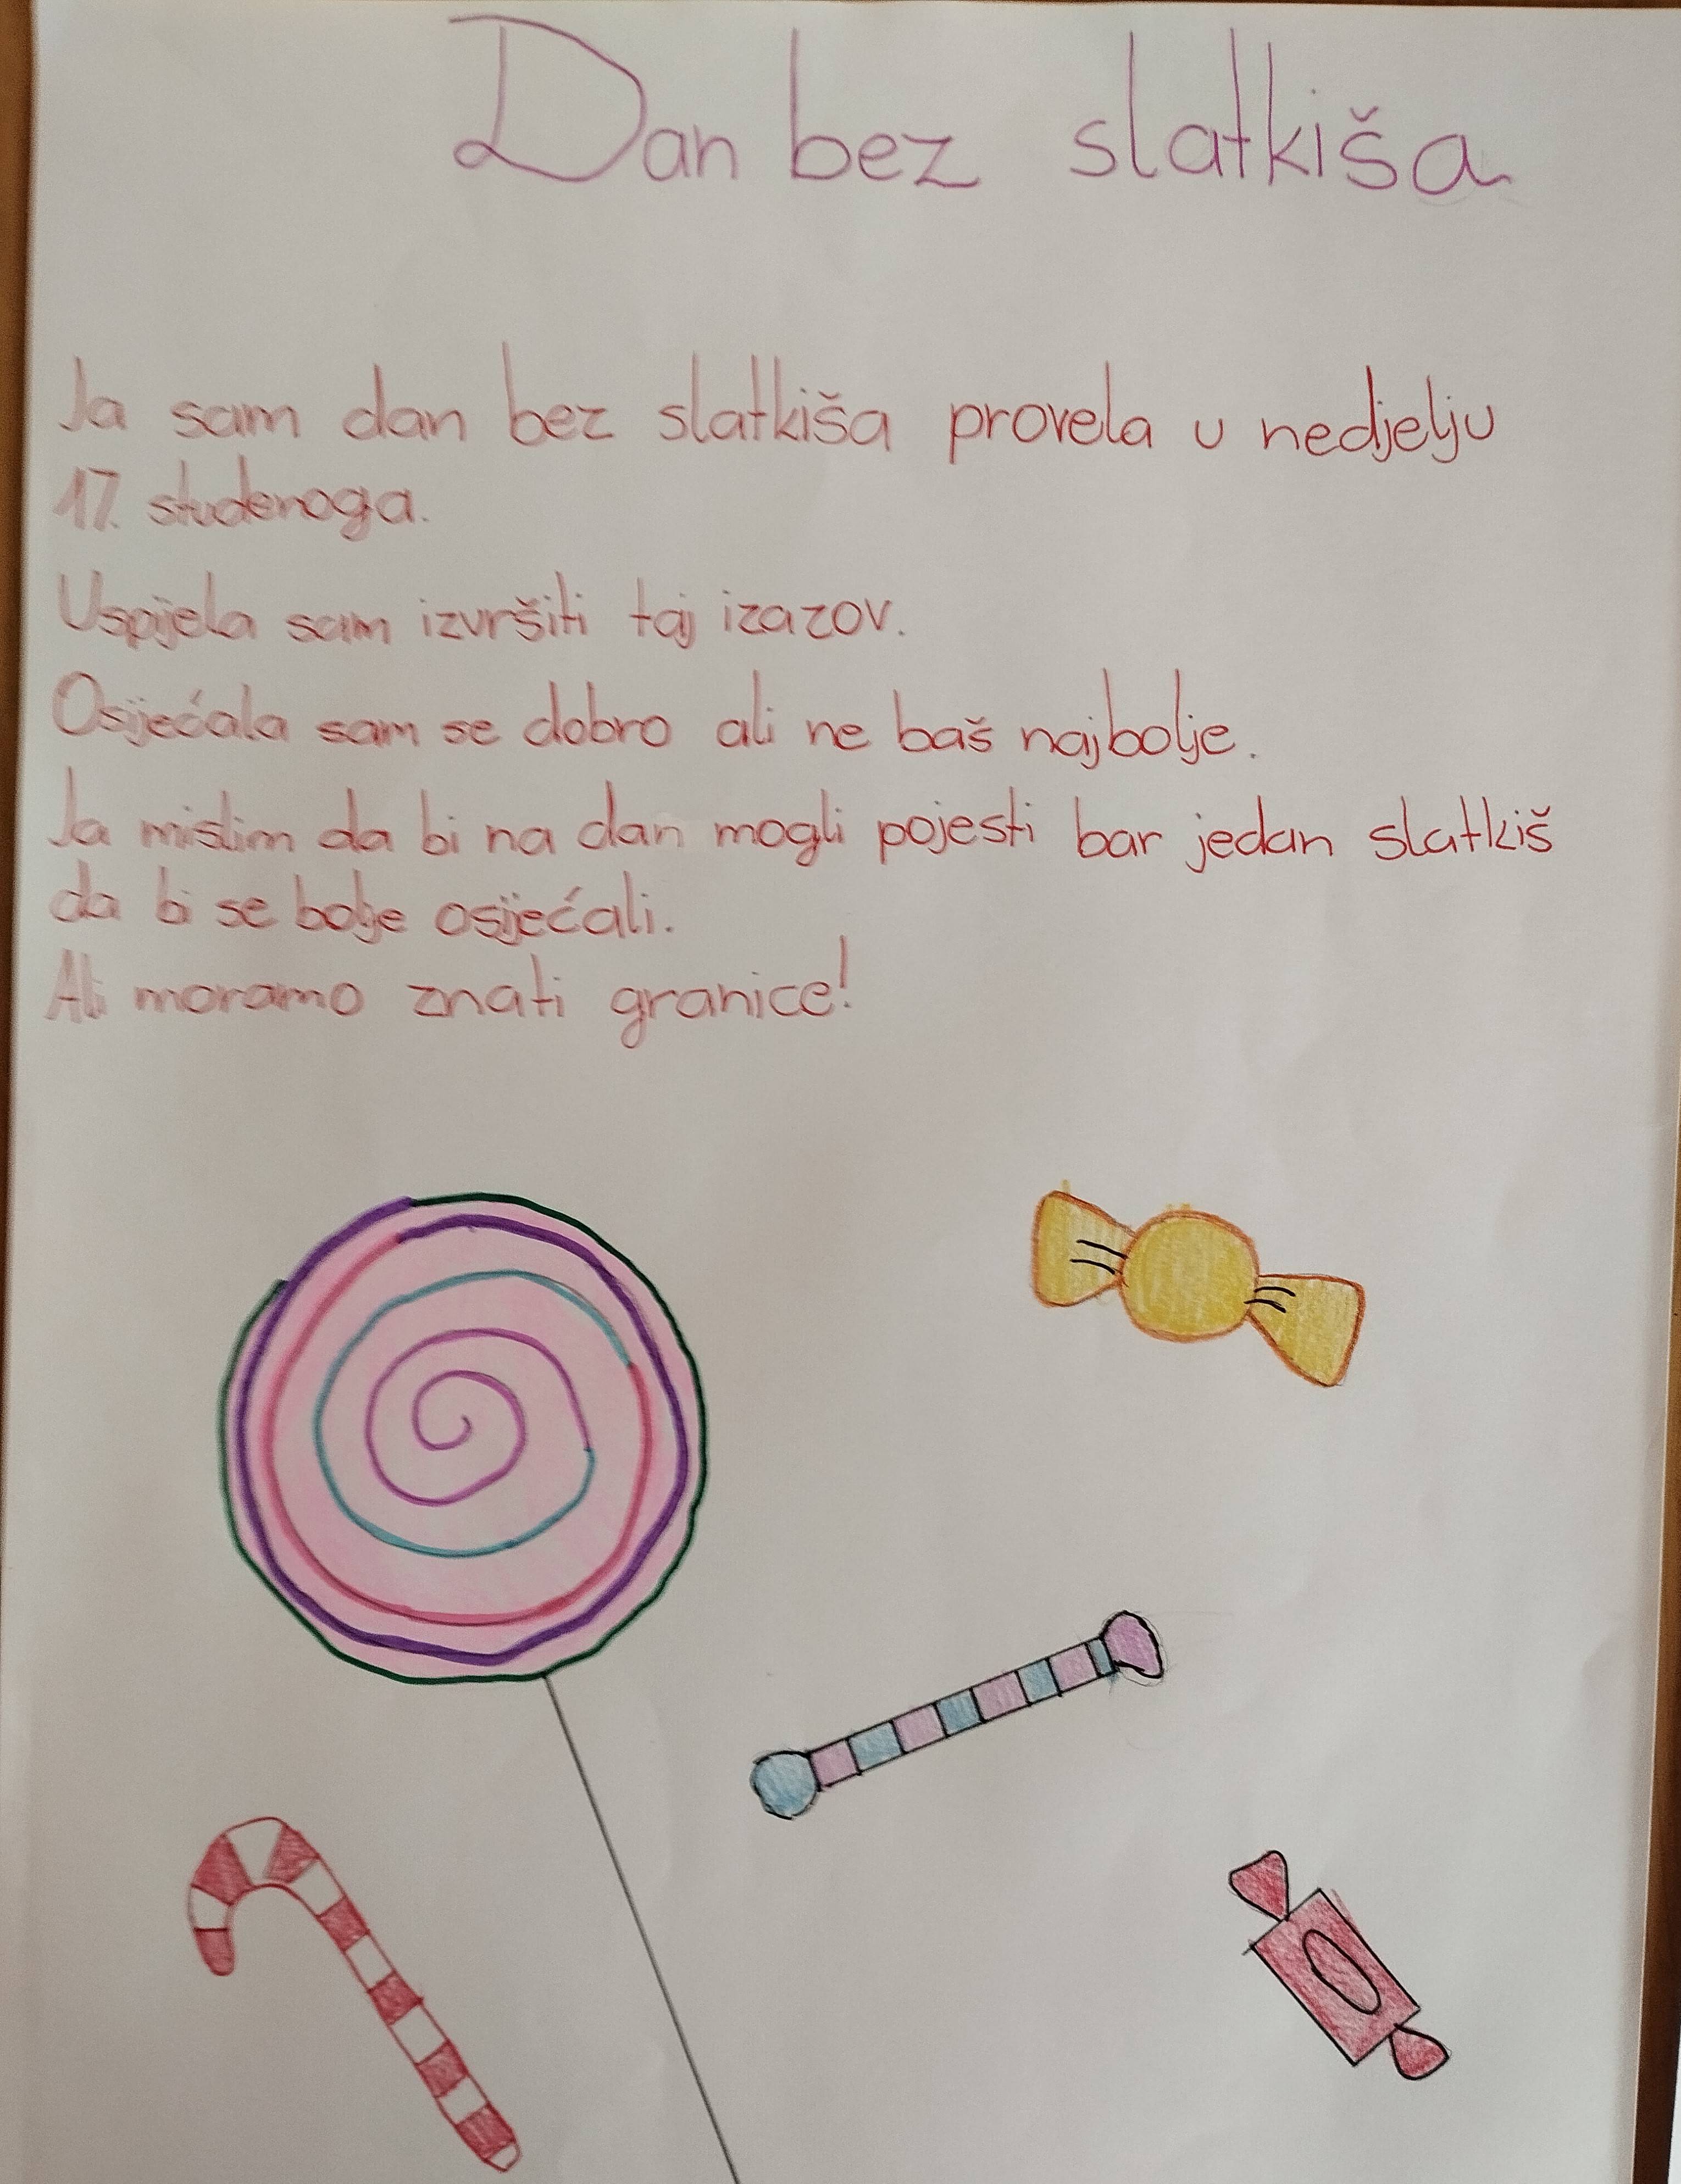 Dan bez slatkiša
Ja sam dan bez slatkiša provela u nedjelju
17. studenoga.
Uspijela sam izvršiti taj izazov.
Osijećala sam se dobro ali ne baš najbolje.
Ja mislim da bi na dan mogli pojesti bar jedan slatkiš
da bi se bolje osijećali.
Ali moramo znati granice!